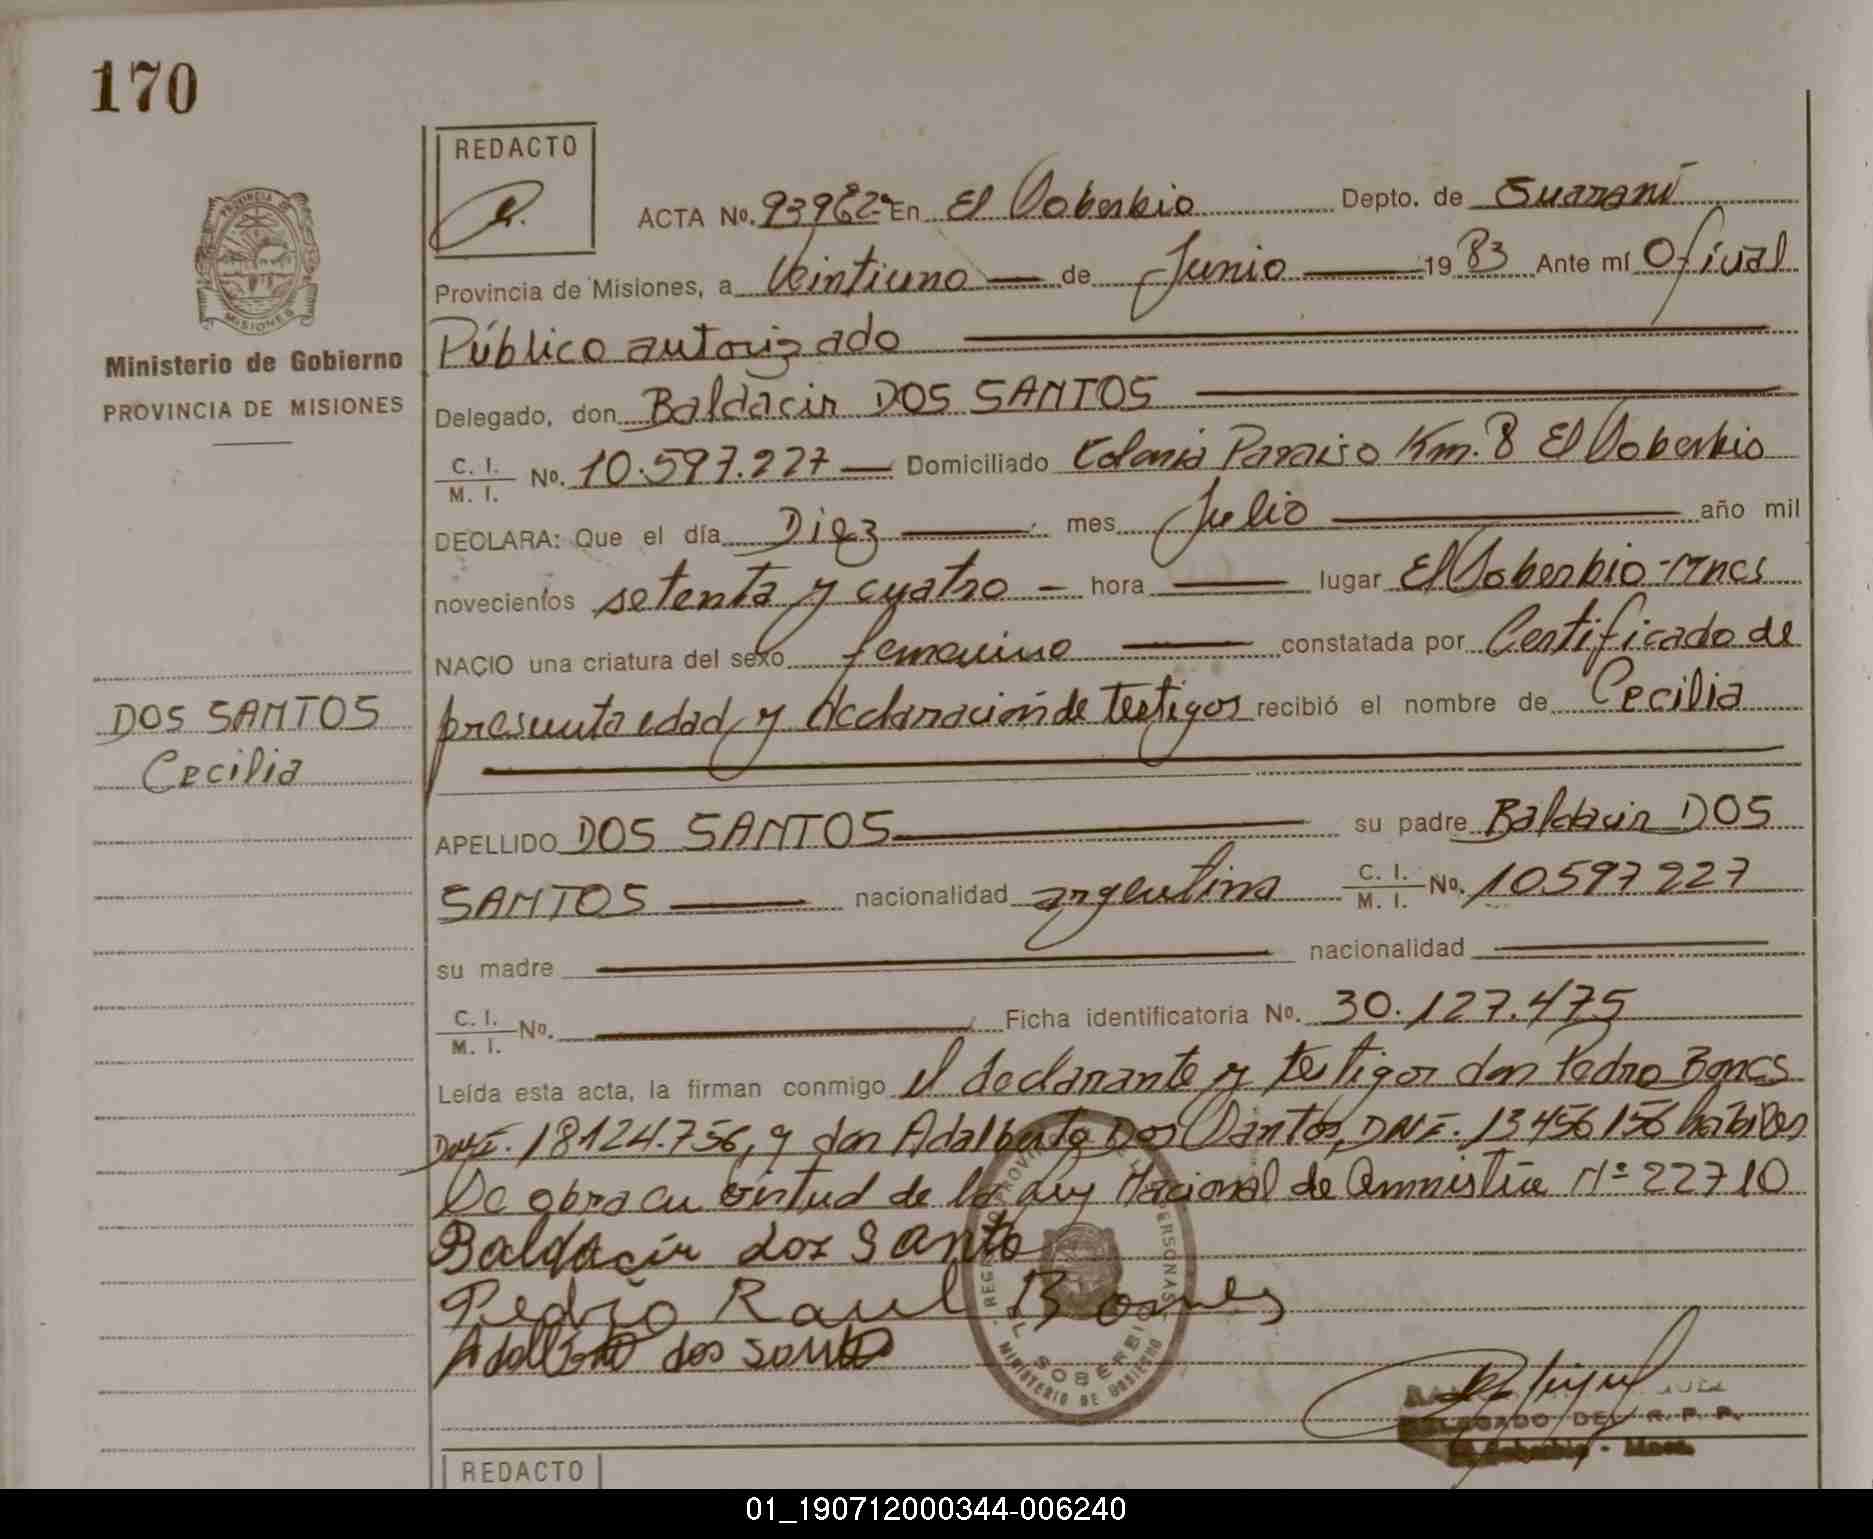 170
REDACTO
ACTA No. 93962 En El Soberbio Depto. de Guaraní
Provincia de Misiones, a Veintiuno de Junio 1983 Ante mí Oficial
Público autorizado
Delegado, don Baldacir DOS SANTOS
C. I. / M. I. No. 10.597.227 Domiciliado Colonia Paraiso Km. 8 El Soberbio
DECLARA: Que el día Diez mes Julio año mil
novecientos setenta y cuatro hora lugar El Soberbio - Mnes
NACIO una criatura del sexo femenino constatada por Certificado de
presunta edad y declaración de testigos recibió el nombre de Cecilia
APELLIDO DOS SANTOS su padre Baldacir DOS
SANTOS nacionalidad argentina C. I. / M. I. No. 10597227
su madre nacionalidad
C. I. / M. I. No. Ficha identificatoria No. 30.127.475
Leída esta acta, la firman conmigo el declarante y testigos don Pedro
18124.756, y don Adalberto Dos Santos, DNI. 13456156 hábiles
De obra en virtud de la Ley Nacional de Amnistia Nº 22710
Baldacir dos Santo
Pedro Raul
dos santo
Ministerio de Gobierno
PROVINCIA DE MISIONES
DOS SANTOS
Cecilia
PROVINCIA DE
MISIONES
EL SOBERBIO
MINISTERIO DE GOBIERNO
DELEGADO DEL R. P. P.
El Soberbio - Mnes.
REDACTO
01_190712000344-006240